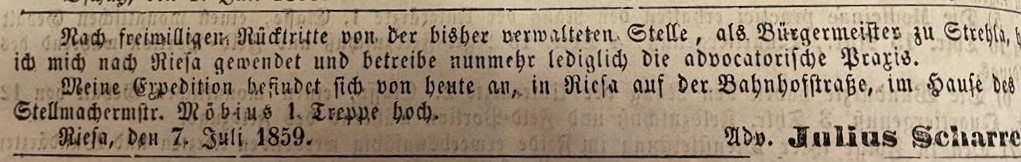 Nach freiwilligem Rücktritte von der bisher verwalteten Stelle, als Bürgermeister zu Strehla,
ich mich nach Riesa gewendet und betreibe nunmehr lediglich die advocatorische Praxis.
Meine Expedition befindet sich von heute an, in Riesa auf der Bahnhofstraße, im Hause des
Stellmachermstr. Möbius 1 Treppe hoch.
Riesa, den 7. Juli 1859.
Adv. Julius Scharre